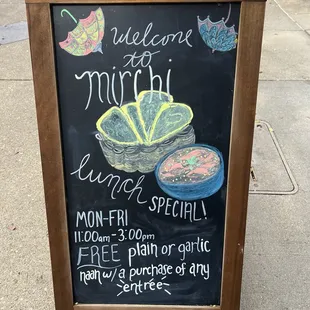 welcome
to
mirchi
lunch SPECIAL!
MON-FRI
11:00am-3:00pm
FREE plain or garlic
naan w/ a purchase of any
entrée